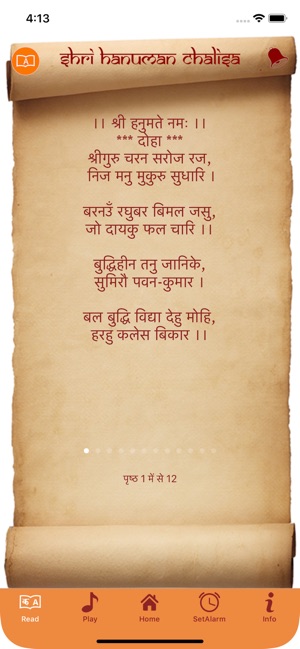 4:13
Shri Hanuman Chalisa
।। श्री हनुमते नमः ।।
*** दोहा ***
श्रीगुरु चरन सरोज रज,
निज मनु मुकुरु सुधारि ।
बरनउँ रघुबर बिमल जसु,
जो दायकु फल चारि ।।
बुद्धिहीन तनु जानिके,
सुमिरौ पवन-कुमार ।
बल बुद्धि विद्या देहु मोहि,
हरहु कलेस बिकार ।।
पृष्ठ 1 में से 12
Read Play Home SetAlarm Info